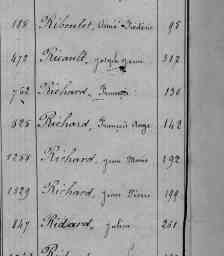 188 Riboulet, Aimé Frédéric 95
472 Ricault, Joseph 312
762 Richard, 130
825 Richard, François Ange 142
1258 Richard, Jean Marie 192
1329 Richard, Jean Pierre 199
847 Ridard, Julien 261